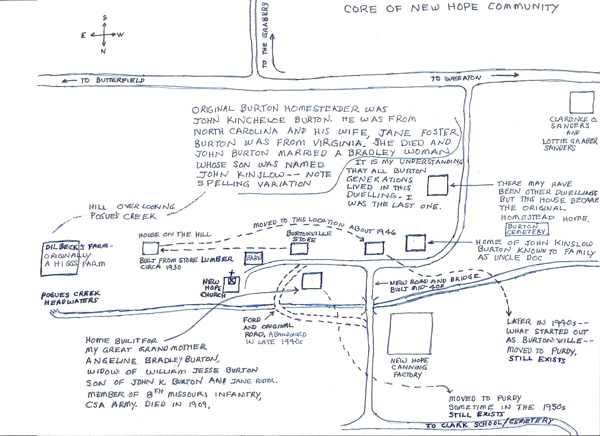 CORE OF NEW HOPE COMMUNITY
S
E
W
N
TO THE GRABERS
TO BUTTERFIELD
TO WHEATON
ORIGINAL BURTON HOMESTEADER WAS
JOHN KINCHELOE BURTON. HE WAS FROM
NORTH CAROLINA AND HIS WIFE, JANE FOSTER
BURTON WAS FROM VIRGINIA. SHE DIED AND
JOHN BURTON MARRIED A BRADLEY WOMAN
WHOSE SON WAS NAMED
JOHN KINSLOW -- NOTE
SPELLING VARIATION
IT IS MY UNDERSTANDING
THAT ALL BURTON
GENERATIONS
LIVED IN THIS
DWELLING. I
WAS THE LAST ONE.
CLARENCE O.
SANDERS
AND
LOTTIE GRABER
SANDERS
THERE MAY HAVE
BEEN OTHER DWELLINGS
BUT THIS HOUSE BECAME
THE ORIGINAL
HOMESTEAD HOME.
BURTON
CEMETERY
HOME OF JOHN KINSLOW
BURTON KNOWN TO FAMILY
AS UNCLE DOC
HILL OVERLOOKING
POGUE'S CREEK
DILBECK'S FARM-
ORIGINALLY
A HIGGS FARM
HOUSE ON THE HILL
BUILT FROM STORE LUMBER
CIRCA 1930
MOVED TO THIS LOCATION ABOUT 1946
BURTONVILLE
STORE
BARN
NEW
HOPE
CHURCH
POGUE'S CREEK
HEADWATERS
NEW ROAD AND BRIDGE
BUILT MID-40S
FORD
AND ORIGINAL
ROAD. ABANDONED
IN LATE 1940s
HOME BUILT FOR
MY GREAT GRANDMOTHER
ANGELINE BRADLEY BURTON,
WIDOW OF WILLIAM JESSE BURTON
SON OF JOHN K. BURTON AND JANE
MEMBER OF 8TH MISSOURI INFANTRY,
CSA ARMY. DIED IN 1909.
NEW HOPE
CANNING
FACTORY
LATER IN 1940s--
WHAT STARTED OUT
AS BURTONVILLE--
MOVED TO PURDY.
STILL EXISTS
MOVED TO PURDY
SOMETIME IN THE 1950s
STILL EXISTS
TO CLARK SCHOOL/CEMETERY